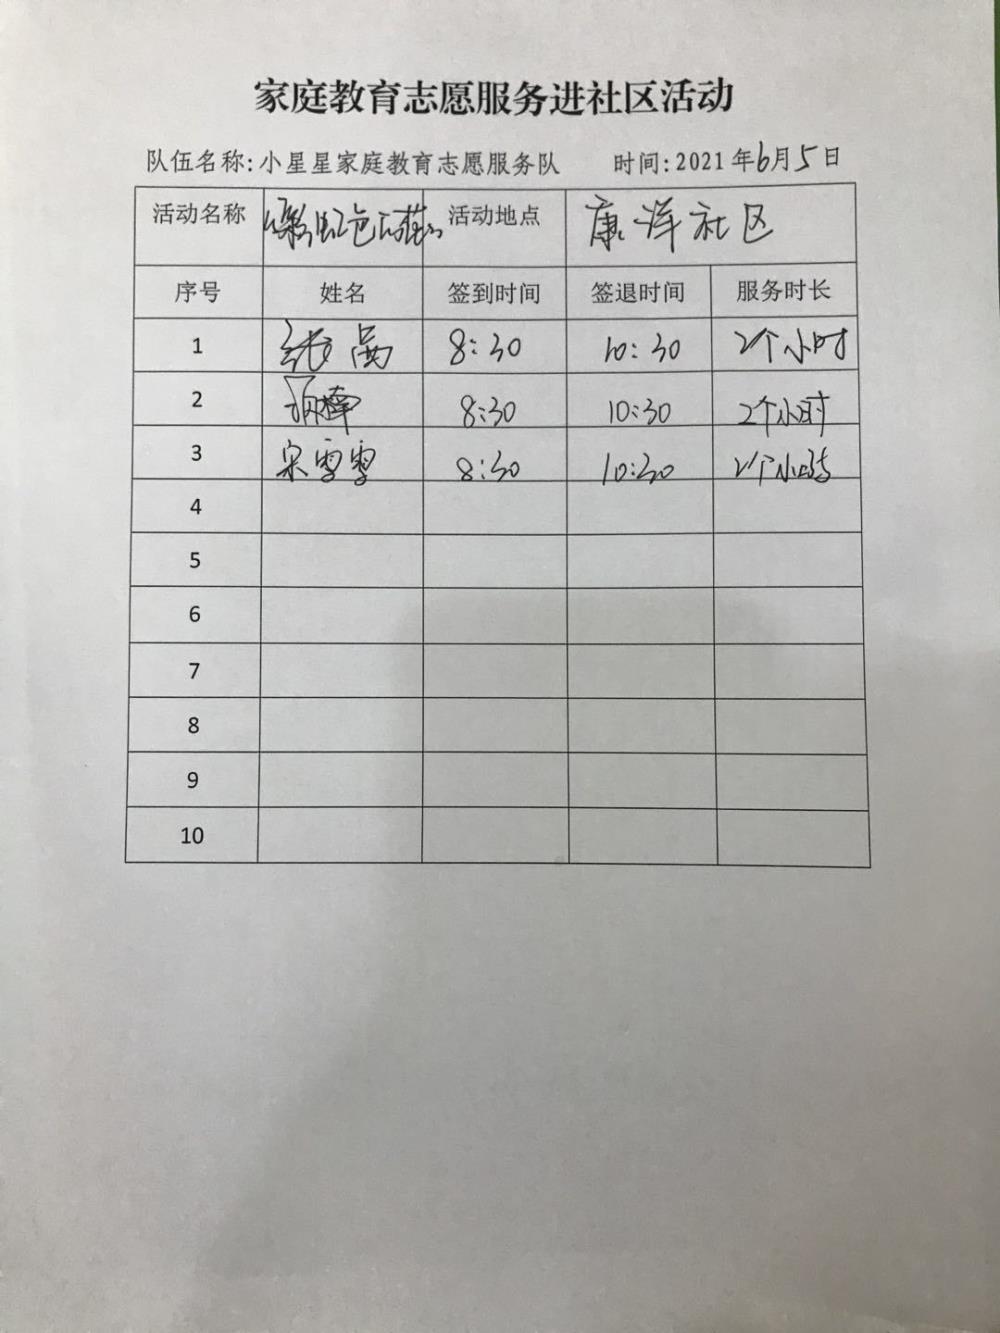 家庭教育志愿服务进社区活动
队伍名称:小星星家庭教育志愿服务队 时间:2021年6月5日
活动名称 彩虹色 活动地点 康洋社区
序号 姓名 签到时间 签退时间 服务时长
1 张 8:30 10:30 2个小时
2 8:30 10:30 2个小时
3 宋雪雪 8:30 10:30 2个小时
4
5
6
7
8
9
10